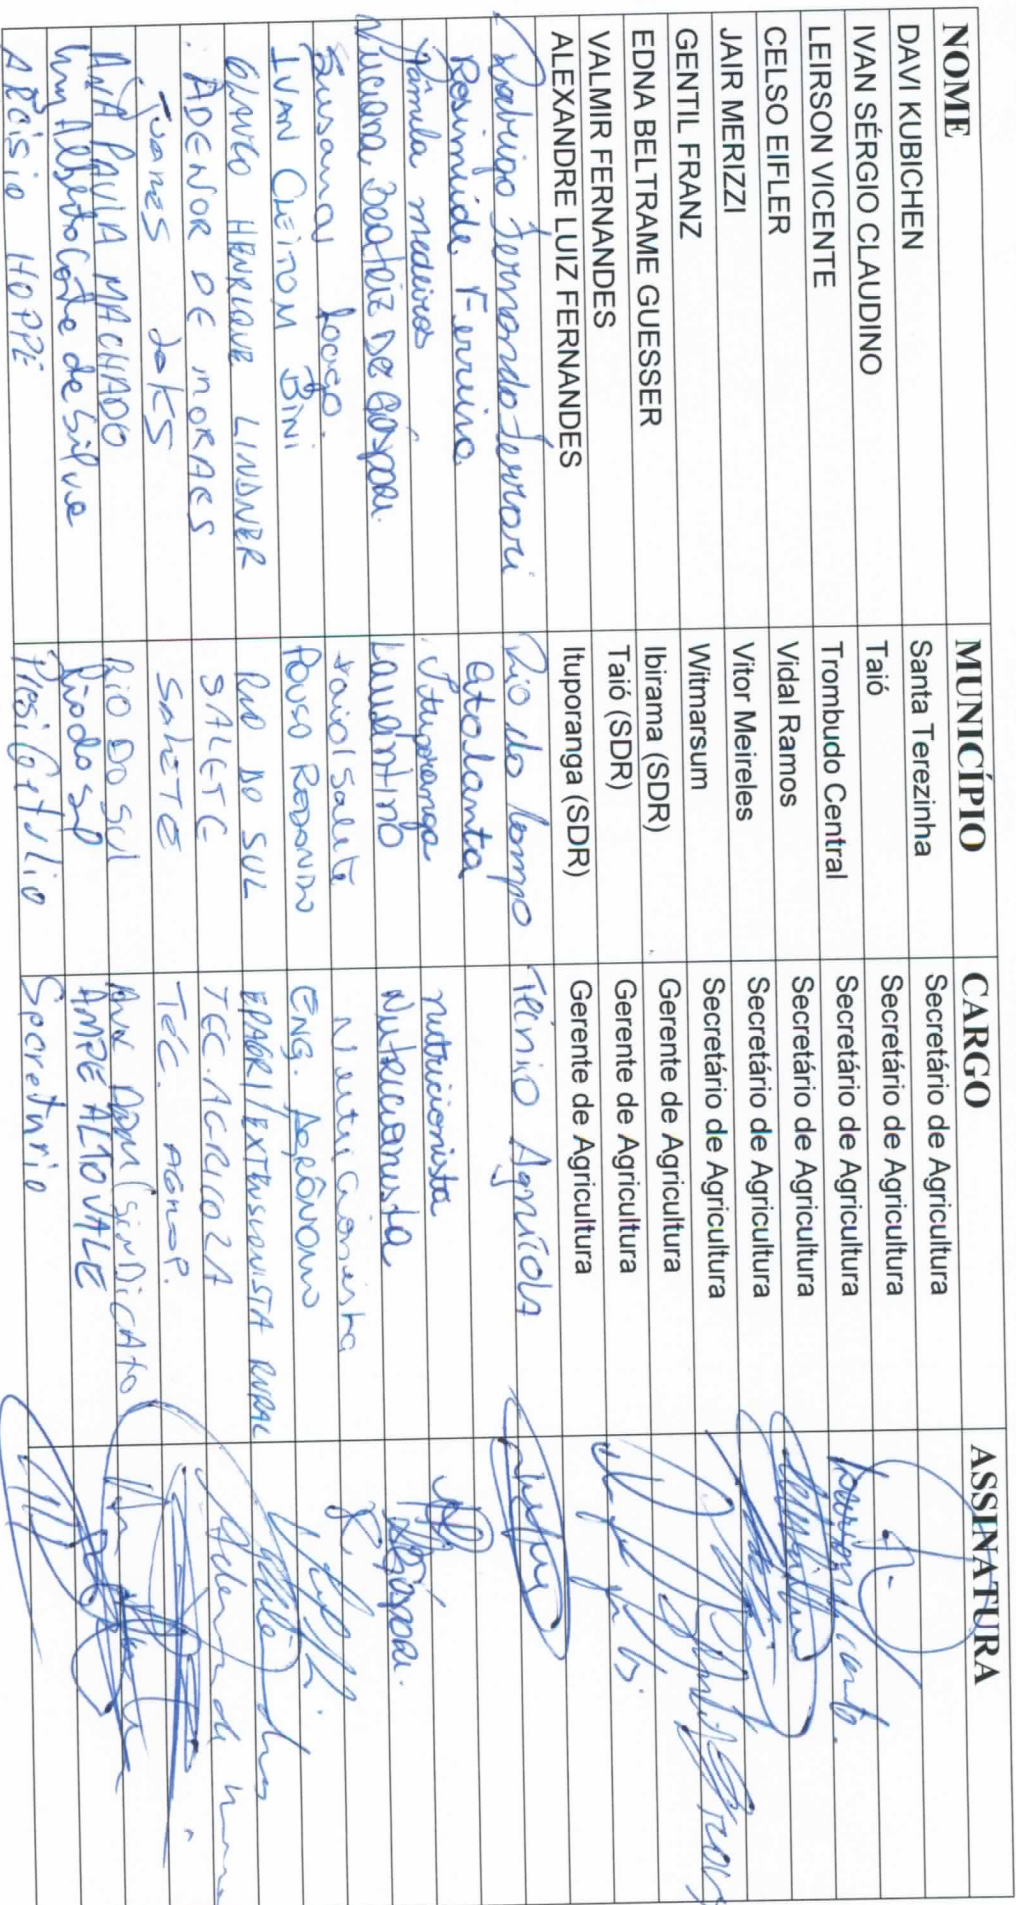 NOME MUNICÍPIO CARGO ASSINATURA
DAVI KUBICHEN Santa Terezinha Secretário de Agricultura
IVAN SÉRGIO CLAUDINO Taió Secretário de Agricultura
LEIRSON VICENTE Trombudo Central Secretário de Agricultura
CELSO EIFLER Vidal Ramos Secretário de Agricultura
JAIR MERIZZI Vitor Meireles Secretário de Agricultura
GENTIL FRANZ Witmarsum Secretário de Agricultura
EDNA BELTRAME GUESSER Ibirama (SDR) Gerente de Agricultura
VALMIR FERNANDES Taió (SDR) Gerente de Agricultura
ALEXANDRE LUIZ FERNANDES Ituporanga (SDR) Gerente de Agricultura
Rodrigo Fernando Ferrari Rio do Campo Técnico Agrícola
Rosimeide Ferreira Atalanta
Pâmela medeiros Ituporanga nutricionista
Luciana Beatriz De Gáspari. Laurentino Nutricionista
Susana Taió/Salete Nutricionista
IVAN CLEITOM BINI POUSO REDONDO ENG. AGRÔNOMO
OLAVGO HENRIQUE LINDNER RIO DO SUL EPAGRI/EXTENSIONISTA RURAL
ADENOR DE MORAES SALETE TEC. AGRICOLA
Juares SALETE TÉC. AGROP.
ANA PAULA MACHADO RIO DO SUL AUX ADM (SINDICATO
Alberto Conte da Silva Rio do Sul AMPE ALTO VALE
ARCISIO HOPPE Presi Getulio Secretario